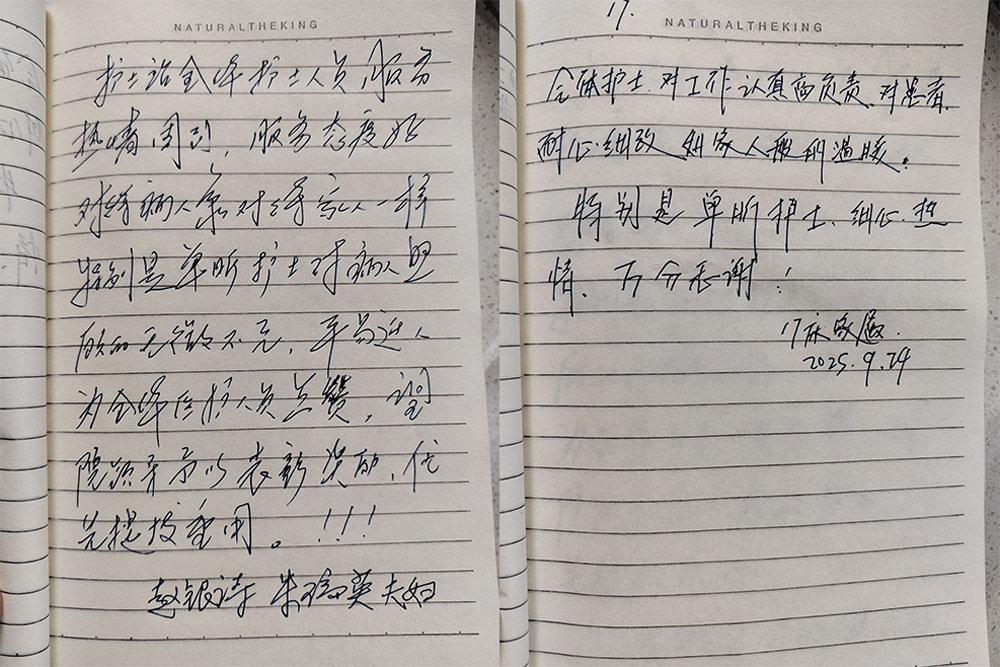 NATURALTHEKING
护士站全体护士人员,服务
热情周到,服务态度好
对待病人象对待家人一样
特别是单昕护士对病人照
顾的无微不至,平易近人
为全体医护人员点赞,望
院领导予以表彰奖励,优
先提拔重用。!!!
赵银 朱 英夫妇
17.
NATURALTHEKING
全体护士.对工作认真负责.对患者.
耐心.细致 如家人般的温暖。
特别是单昕护士.细心.热
情、万分感谢!
17床家属.
2025.9.29